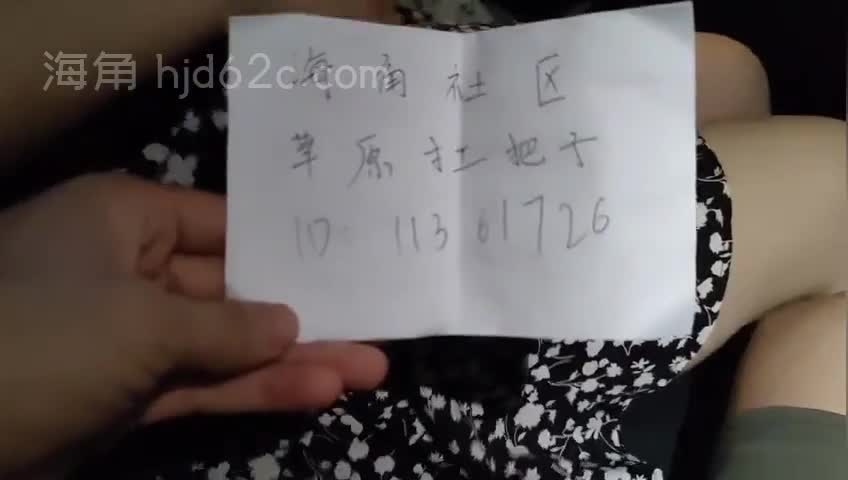 海角 hjd62c.com
海角社区
草原扛把子
ID 11361726